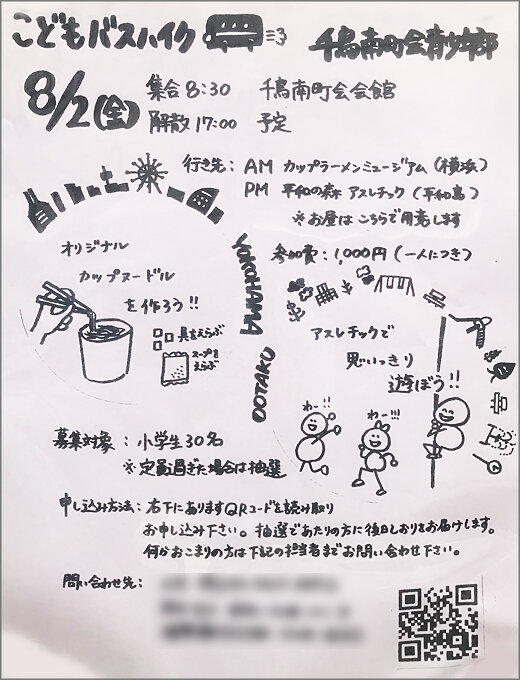 こどもバスハイク
千鳥南町会青少年部
8/2(金) 集合 8:30 千鳥南町会会館
解散 17:00 予定
行き先: AM カップラーメンミュージアム (横浜)
PM 平和の森 アスレチック (平和島)
※お昼はこちらで用意します
参加費: 1,000円 (一人につき)
オリジナル
カップヌードル
を作ろう!!
具をえらぶ
スープを
えらぶ
YOKOHAMA
OOTAKU
アスレチックで
思いっきり
遊ぼう!!
わー!!
わー!!!
募集対象: 小学生30名
※定員過ぎた場合は抽選
申し込み方法: 右下にありますQRコードを読み取り
お申し込み下さい。抽選であたりの方に後日しおりをお届けします。
何かおこまりの方は下記の担当者までお問い合わせ下さい。
問い合わせ先: